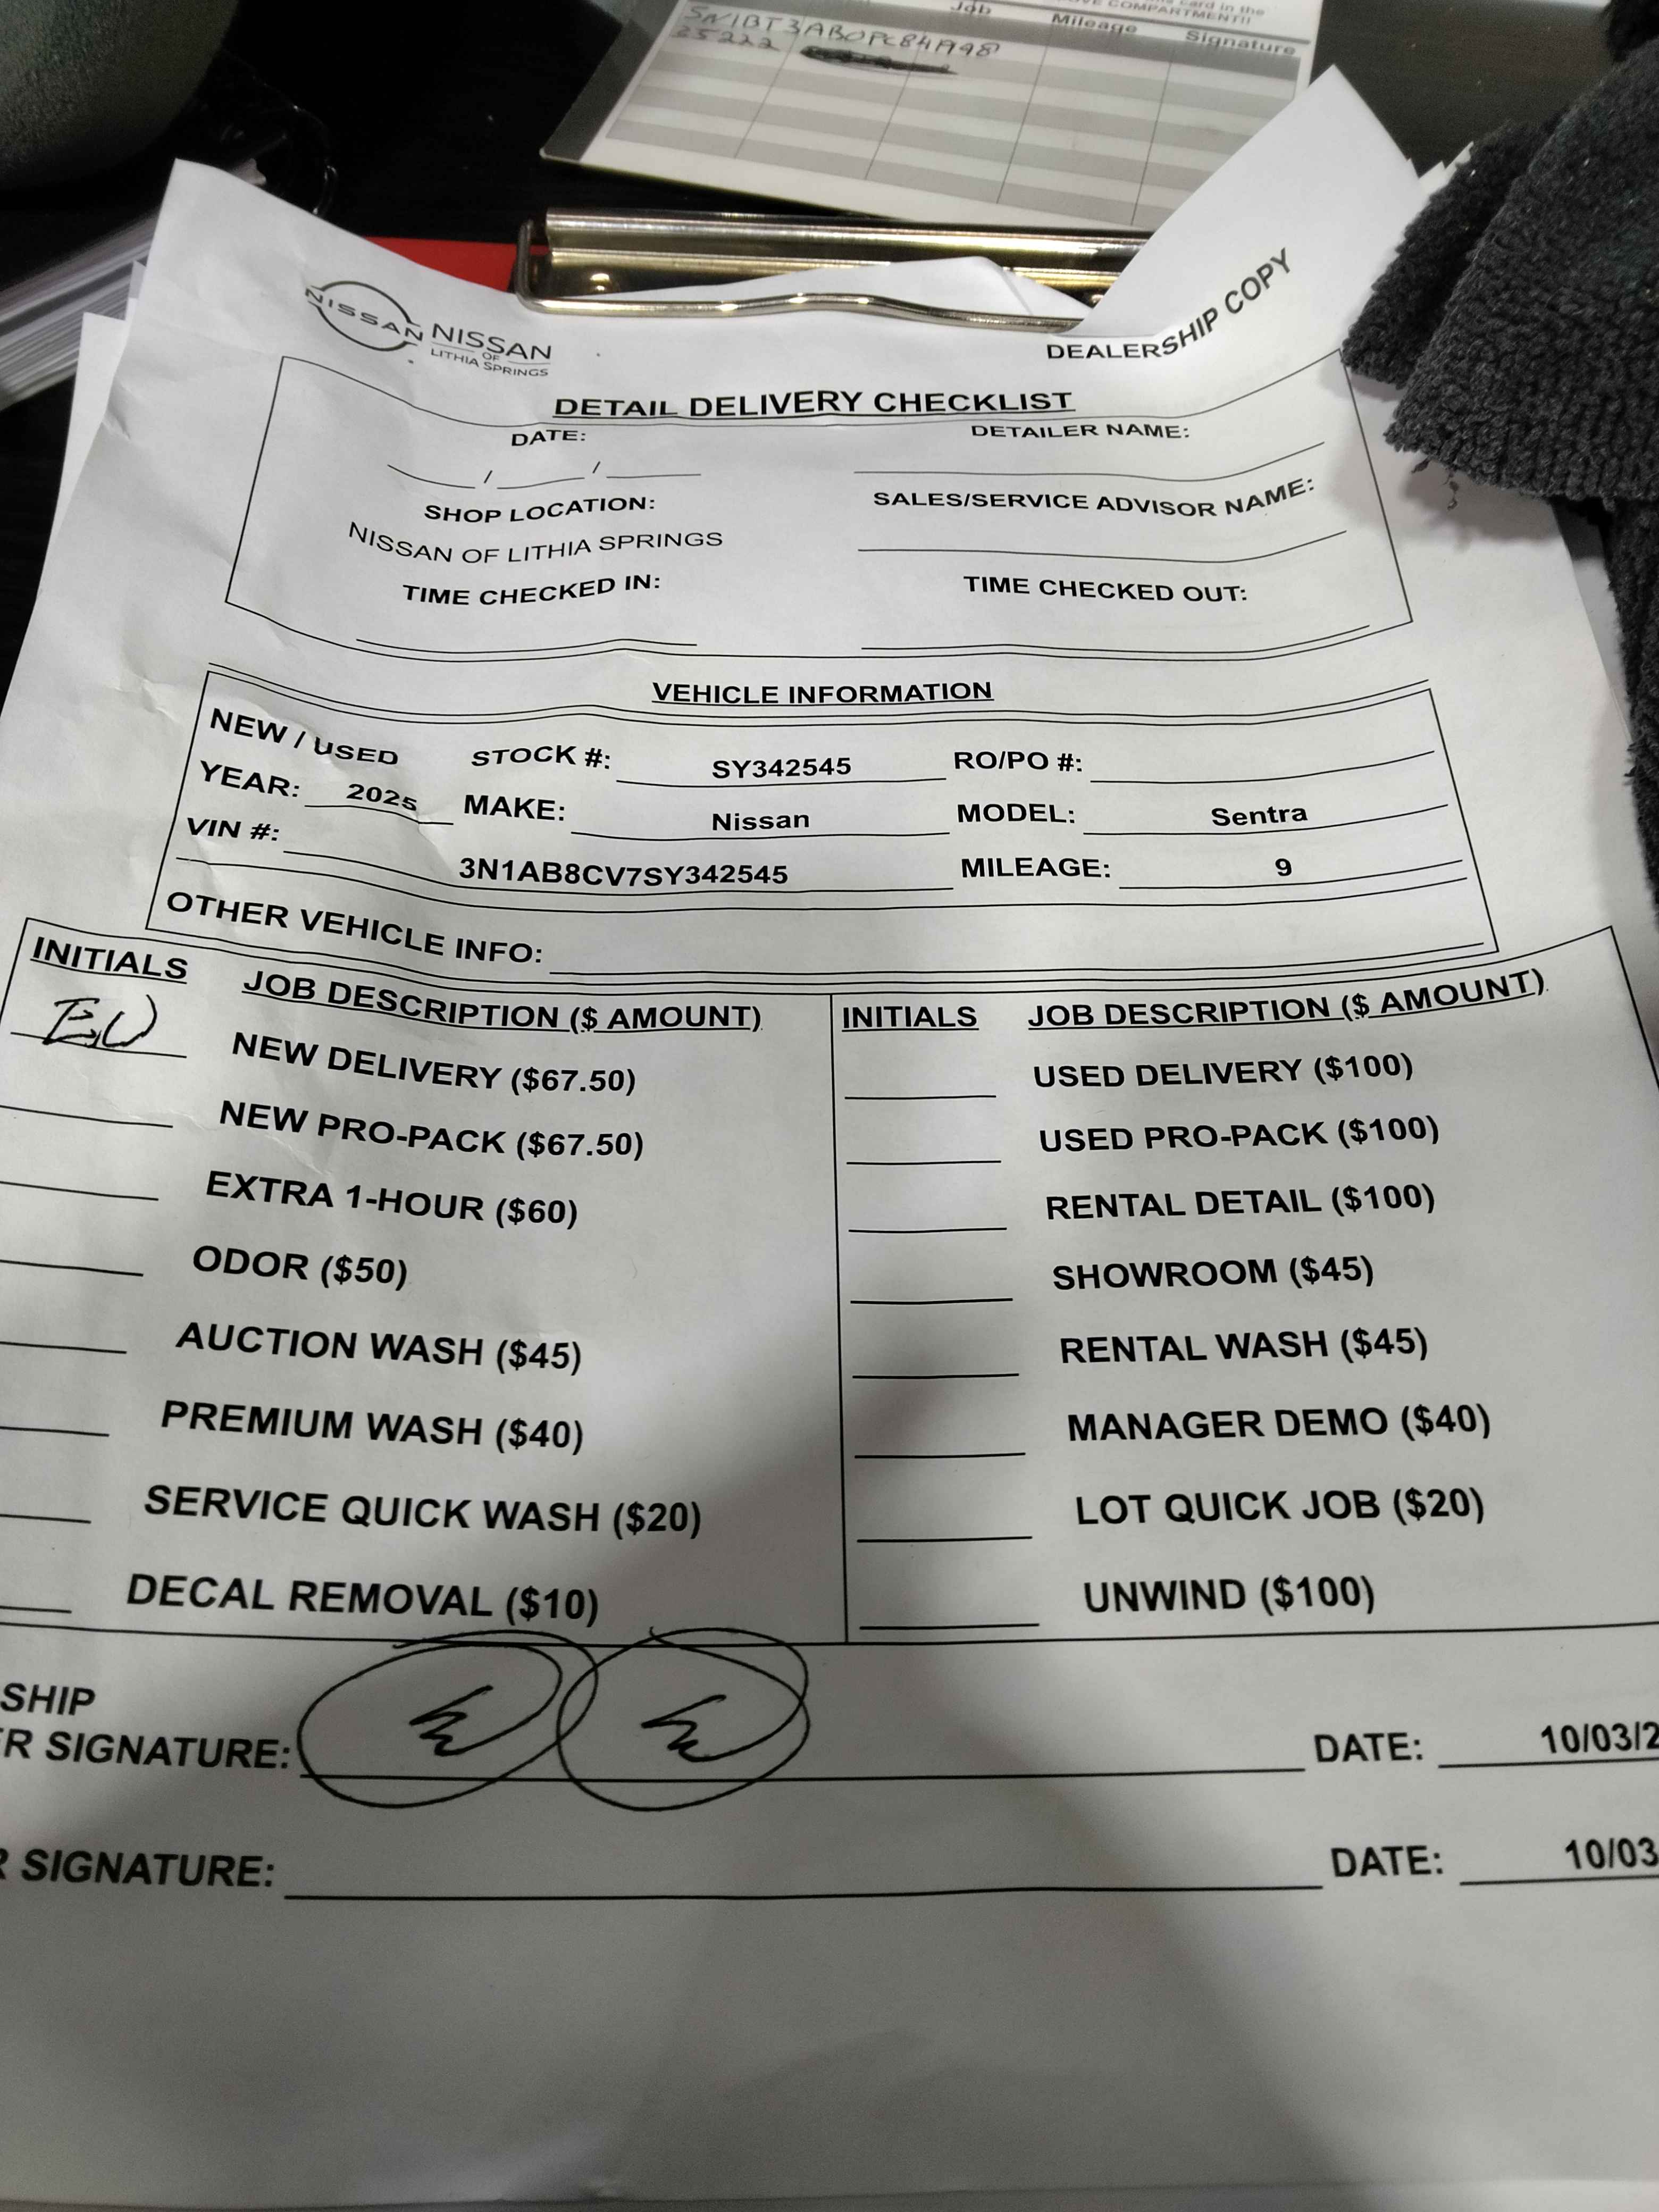 card in the
COMPARTMENT!!
Job Mileage Signature
5N1BT3AB0PC84A98
25222
NISSAN
NISSAN
OF
LITHIA SPRINGS
DEALERSHIP COPY
DETAIL DELIVERY CHECKLIST
DATE: DETAILER NAME:
/ /
SHOP LOCATION: SALES/SERVICE ADVISOR NAME:
NISSAN OF LITHIA SPRINGS
TIME CHECKED IN: TIME CHECKED OUT:
VEHICLE INFORMATION
NEW / USED STOCK #: SY342545 RO/PO #:
YEAR: 2025 MAKE: Nissan MODEL: Sentra
VIN #: 3N1AB8CV7SY342545 MILEAGE: 9
OTHER VEHICLE INFO:
INITIALS JOB DESCRIPTION ($ AMOUNT) INITIALS JOB DESCRIPTION ($ AMOUNT)
NEW DELIVERY ($67.50) USED DELIVERY ($100)
NEW PRO-PACK ($67.50) USED PRO-PACK ($100)
EXTRA 1-HOUR ($60) RENTAL DETAIL ($100)
ODOR ($50) SHOWROOM ($45)
AUCTION WASH ($45) RENTAL WASH ($45)
PREMIUM WASH ($40) MANAGER DEMO ($40)
SERVICE QUICK WASH ($20) LOT QUICK JOB ($20)
DECAL REMOVAL ($10) UNWIND ($100)
SHIP
ER SIGNATURE: DATE: 10/03/2
R SIGNATURE: DATE: 10/03